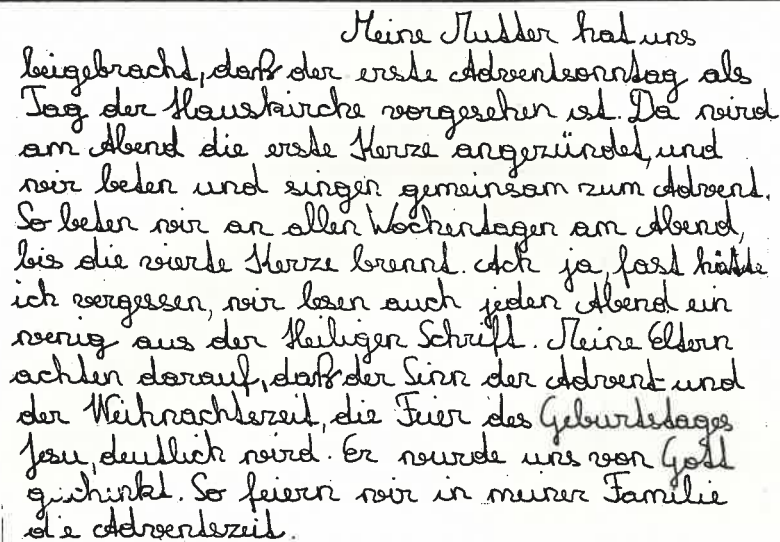 Meine Mutter hat uns
beigebracht, daß der erste Adventsonntag als
Tag der Hauskirche vorgesehen ist. Da wird
am Abend die erste Kerze angezündet, und
wir beten und singen gemeinsam zum Advent.
So beten wir an allen Wochentagen am Abend,
bis die vierte Kerze brennt. Ach ja, fast hätte
ich vergessen, wir lesen auch jeden Abend ein
wenig aus der Heiligen Schrift. Meine Eltern
achten darauf, daß der Sinn der Advent und
der Weihnachtszeit, die Feier des Geburtstages
Jesu, deutlich wird. Er wurde uns von Gott
geschenkt. So feiern wir in meiner Familie
die Adventszeit.